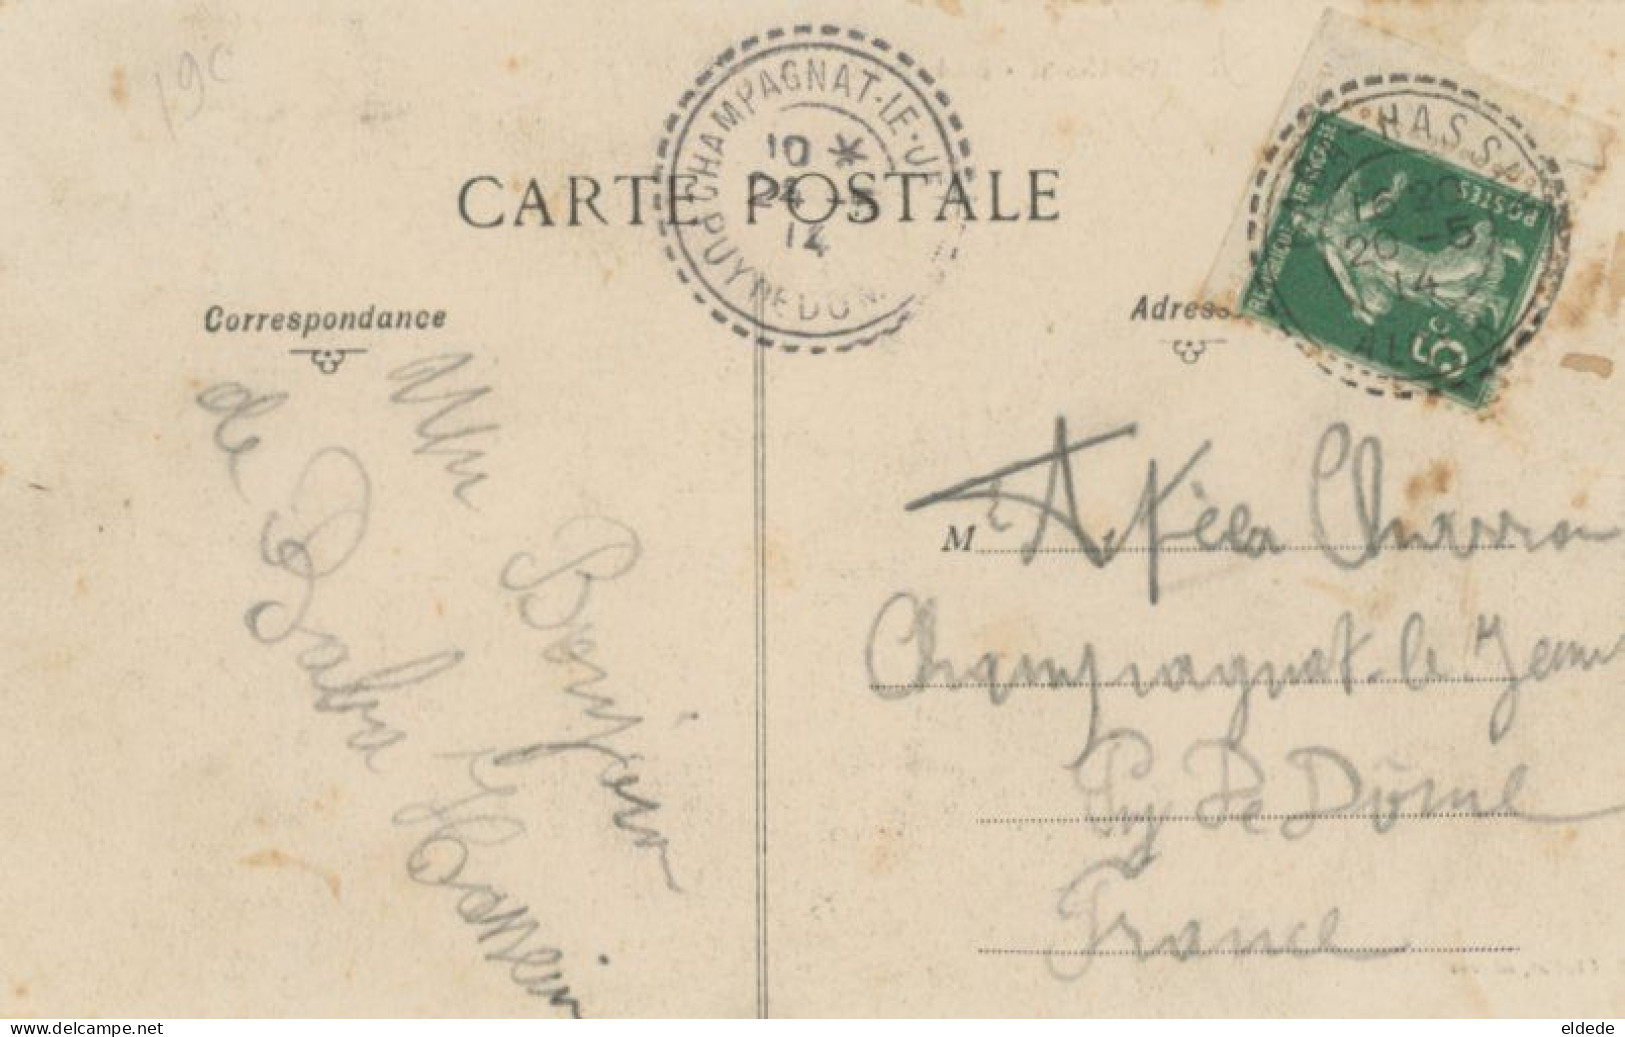 19c
CHAMPAGNAT-LE-JE
PUY DE DOM
10 *
24 -5
14
CARTE POSTALE
HASS
10 20
20 -5
14
AL
POSTES
5c
Correspondance
Adress
Un Bonjour
de Baba
M
Charron
Champagnat-le-Jeune
Puy De Dôme
France
www.delcampe.net
eldede